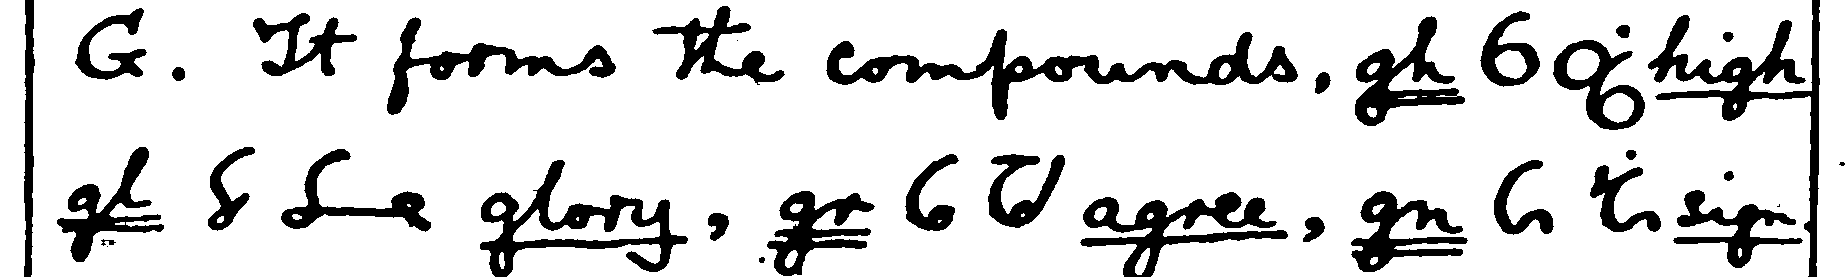 G. It forms the compounds, gh high
gl glory, gr agree, gn sign.